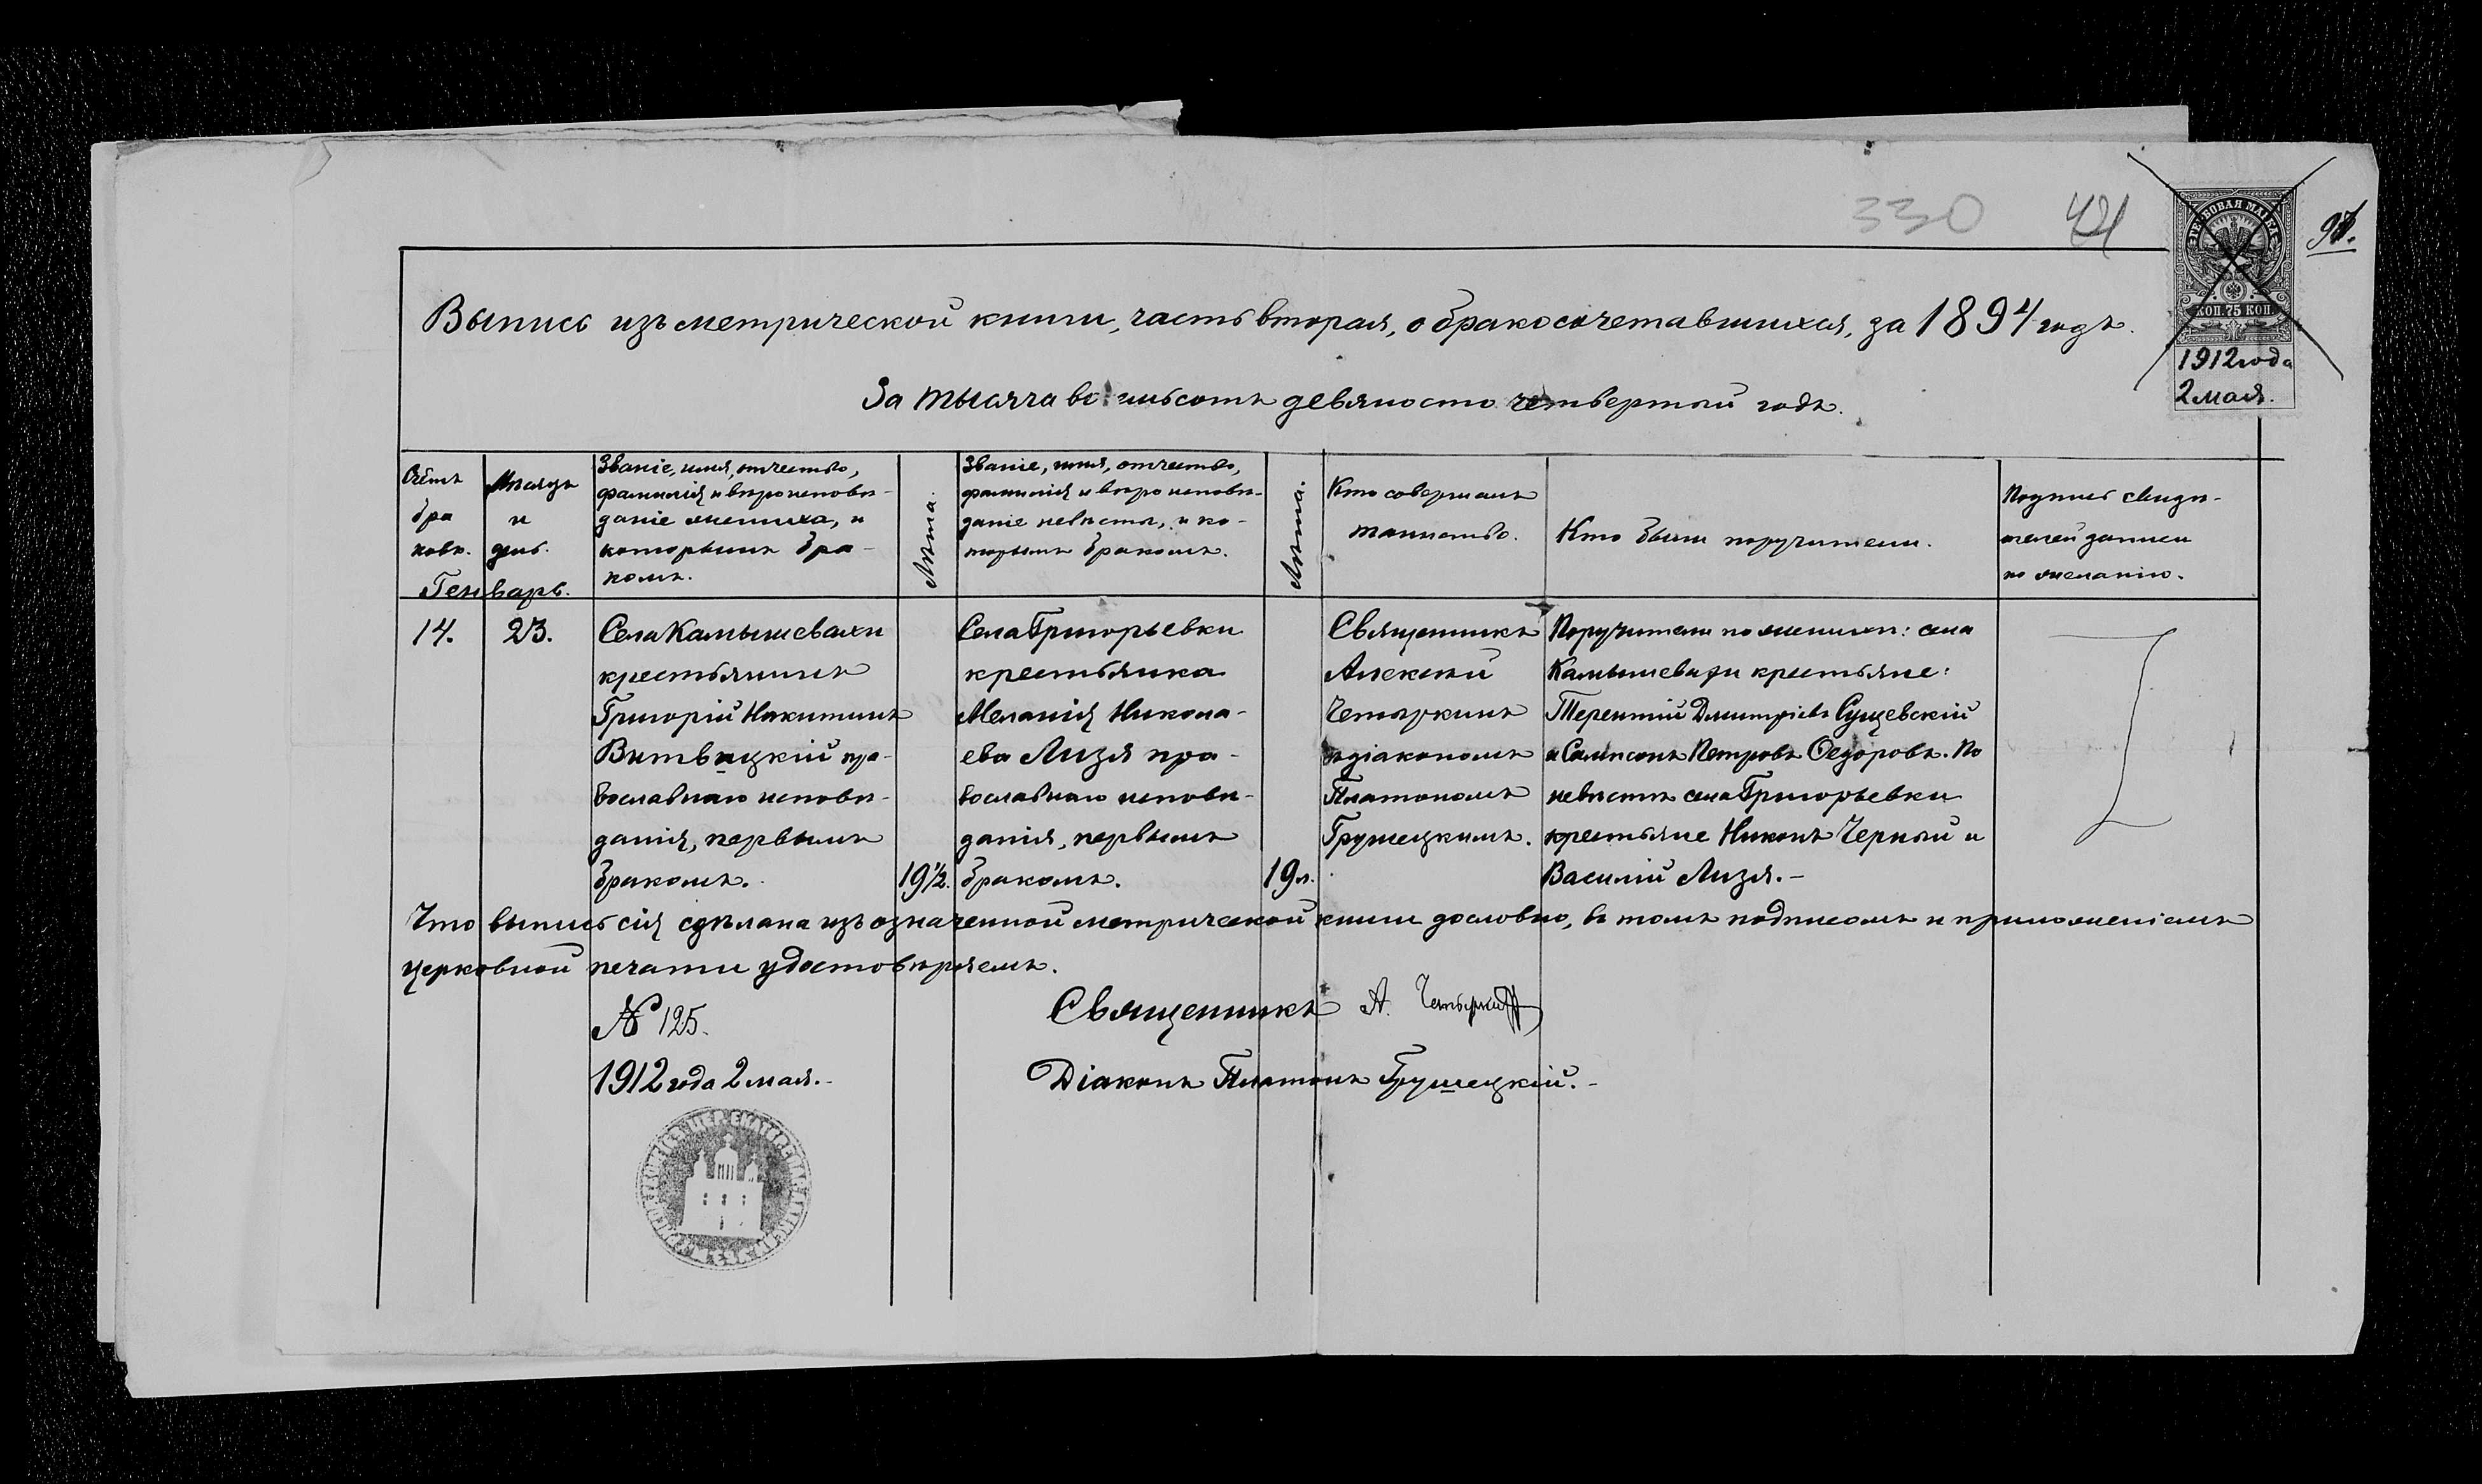 330 421 97.
ГЕРБОВАЯ МАРКА
КОП. 75 КОП.
1912 года
2 мая.
Выпись изъ метрической книги, часть вторая, о бракосочетавшихся, за 1894 годъ.
За тысяча восемьсотъ девяносто четвертый годъ.
Счетъ
бра
ковъ.
Мѣсяцъ
и
день.
Генварь.
Званіе, имя, отчество,
фамилія и вѣроисповѣ-
даніе жениха, и
которымъ бра-
комъ.
Лѣта.
Званіе, имя, отчество,
фамилія и вѣроисповѣ-
даніе невѣсты, и ко-
торымъ бракомъ.
Лѣта.
Кто совершалъ
таинство.
Кто были поручители.
Подпись свидѣ-
телей записи
по желанію.
14.
23.
Села Камышевахи
крестьянинъ
Григорій Никитинъ
Витвицкій пра-
вославнаго исповѣ-
данія, первымъ
бракомъ.
19½.
Села Григорьевки
крестьянка
Меланія Никола-
ева Лизя пра-
вославнаго исповѣ-
данія, первымъ
бракомъ.
19 л.
Священникъ
Алексій
Четыркинъ
съ діакономъ
Платономъ
Грушецкимъ.
Поручители по женихѣ: села
Камышевахи крестьяне:
Терентій Димитріевъ Сущевскій
и Сампсонъ Петровъ Ѳедоровъ. По
невѣстѣ села Григорьевки
крестьяне Никонъ Черный и
Василій Лизя.-
Что выпись сія сдѣлана изъ означенной метрической книги дословно, въ томъ подписомъ и приложеніемъ
церковной печати удостовѣряемъ.
№ 125.
1912 года 2 мая.-
Священникъ А. Четыркинъ
Діаконъ Платонъ Грушецкій.-